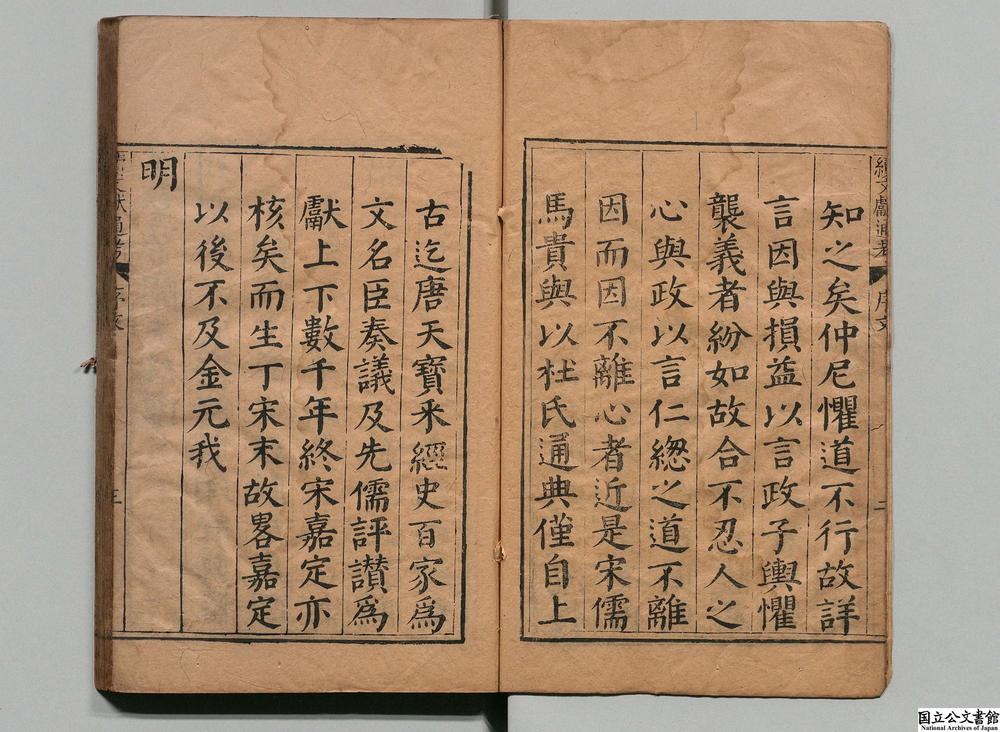 知之矣仲尼懼道不行故詳
言因與損益以言政子輿懼
襲義者紛如故合不忍人之
心與政以言仁緫之道不離
因而因不離心者近是宋儒
馬貴與以杜氏通典僅自上
古迄唐天寶釆經史百家爲
文名臣奏議及先儒評讃爲
獻上下數千年終宋嘉定亦
核矣而生丁宋末故畧嘉定
以後不及金元我
明
文獻通考
序文
二
文獻通考
序文
三
国立公文書館
National Archives of Japan